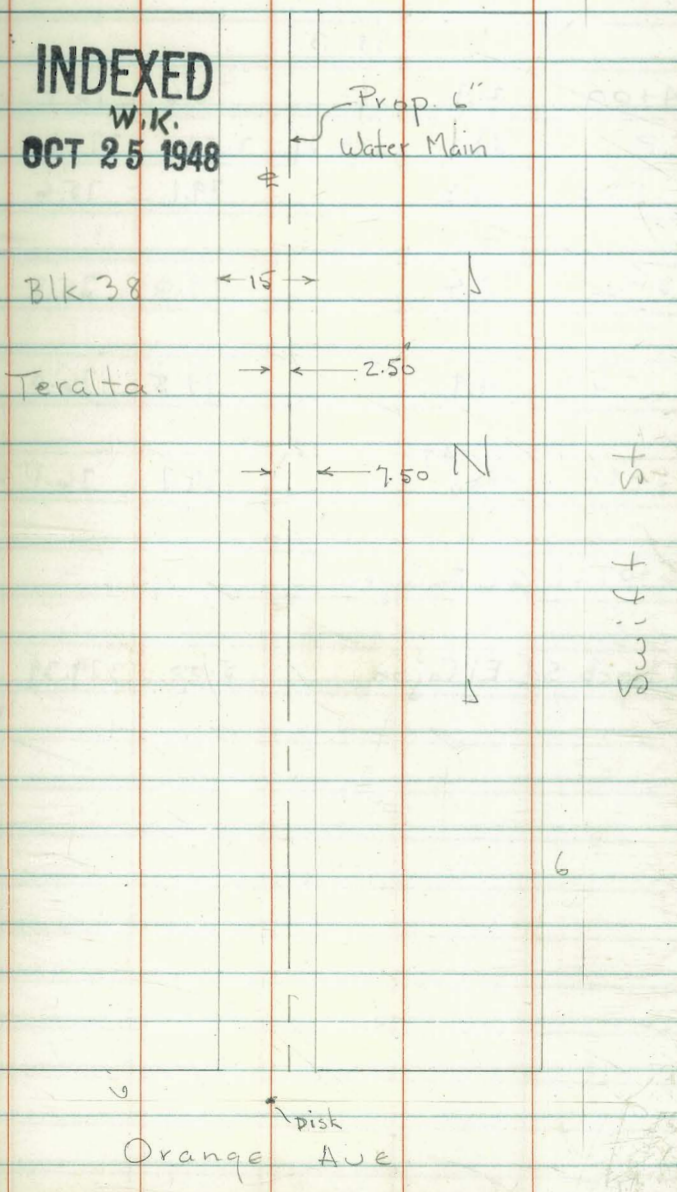 INDEXED
W.K.
OCT 25 1948
Prop. 6"
Water Main
℄
Blk 38
15
Teralta.
2.50
7.50
N
Swift St
6
6
Disk
Orange Ave